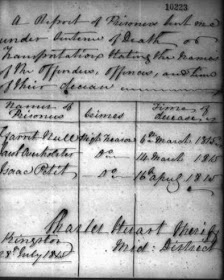 10223
A Report of Prisoners
under Sentence of Death or
Transportation Stating the Names
of the Offenders, Offences, and time
of their decease
Names of Prisoners Crimes Time of decease
Garret Neill High Treason 6th March 1815
Do 14 March 1815
Isaac Petit Do 16th April 1815
Charles Stuart Sheriff
Mid: District
Kingston
28th July 1815